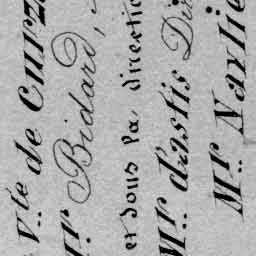 V.te de Curz
Mr Bidard,
et sous la direction
Mr d'astis Dir
Mr Navlie